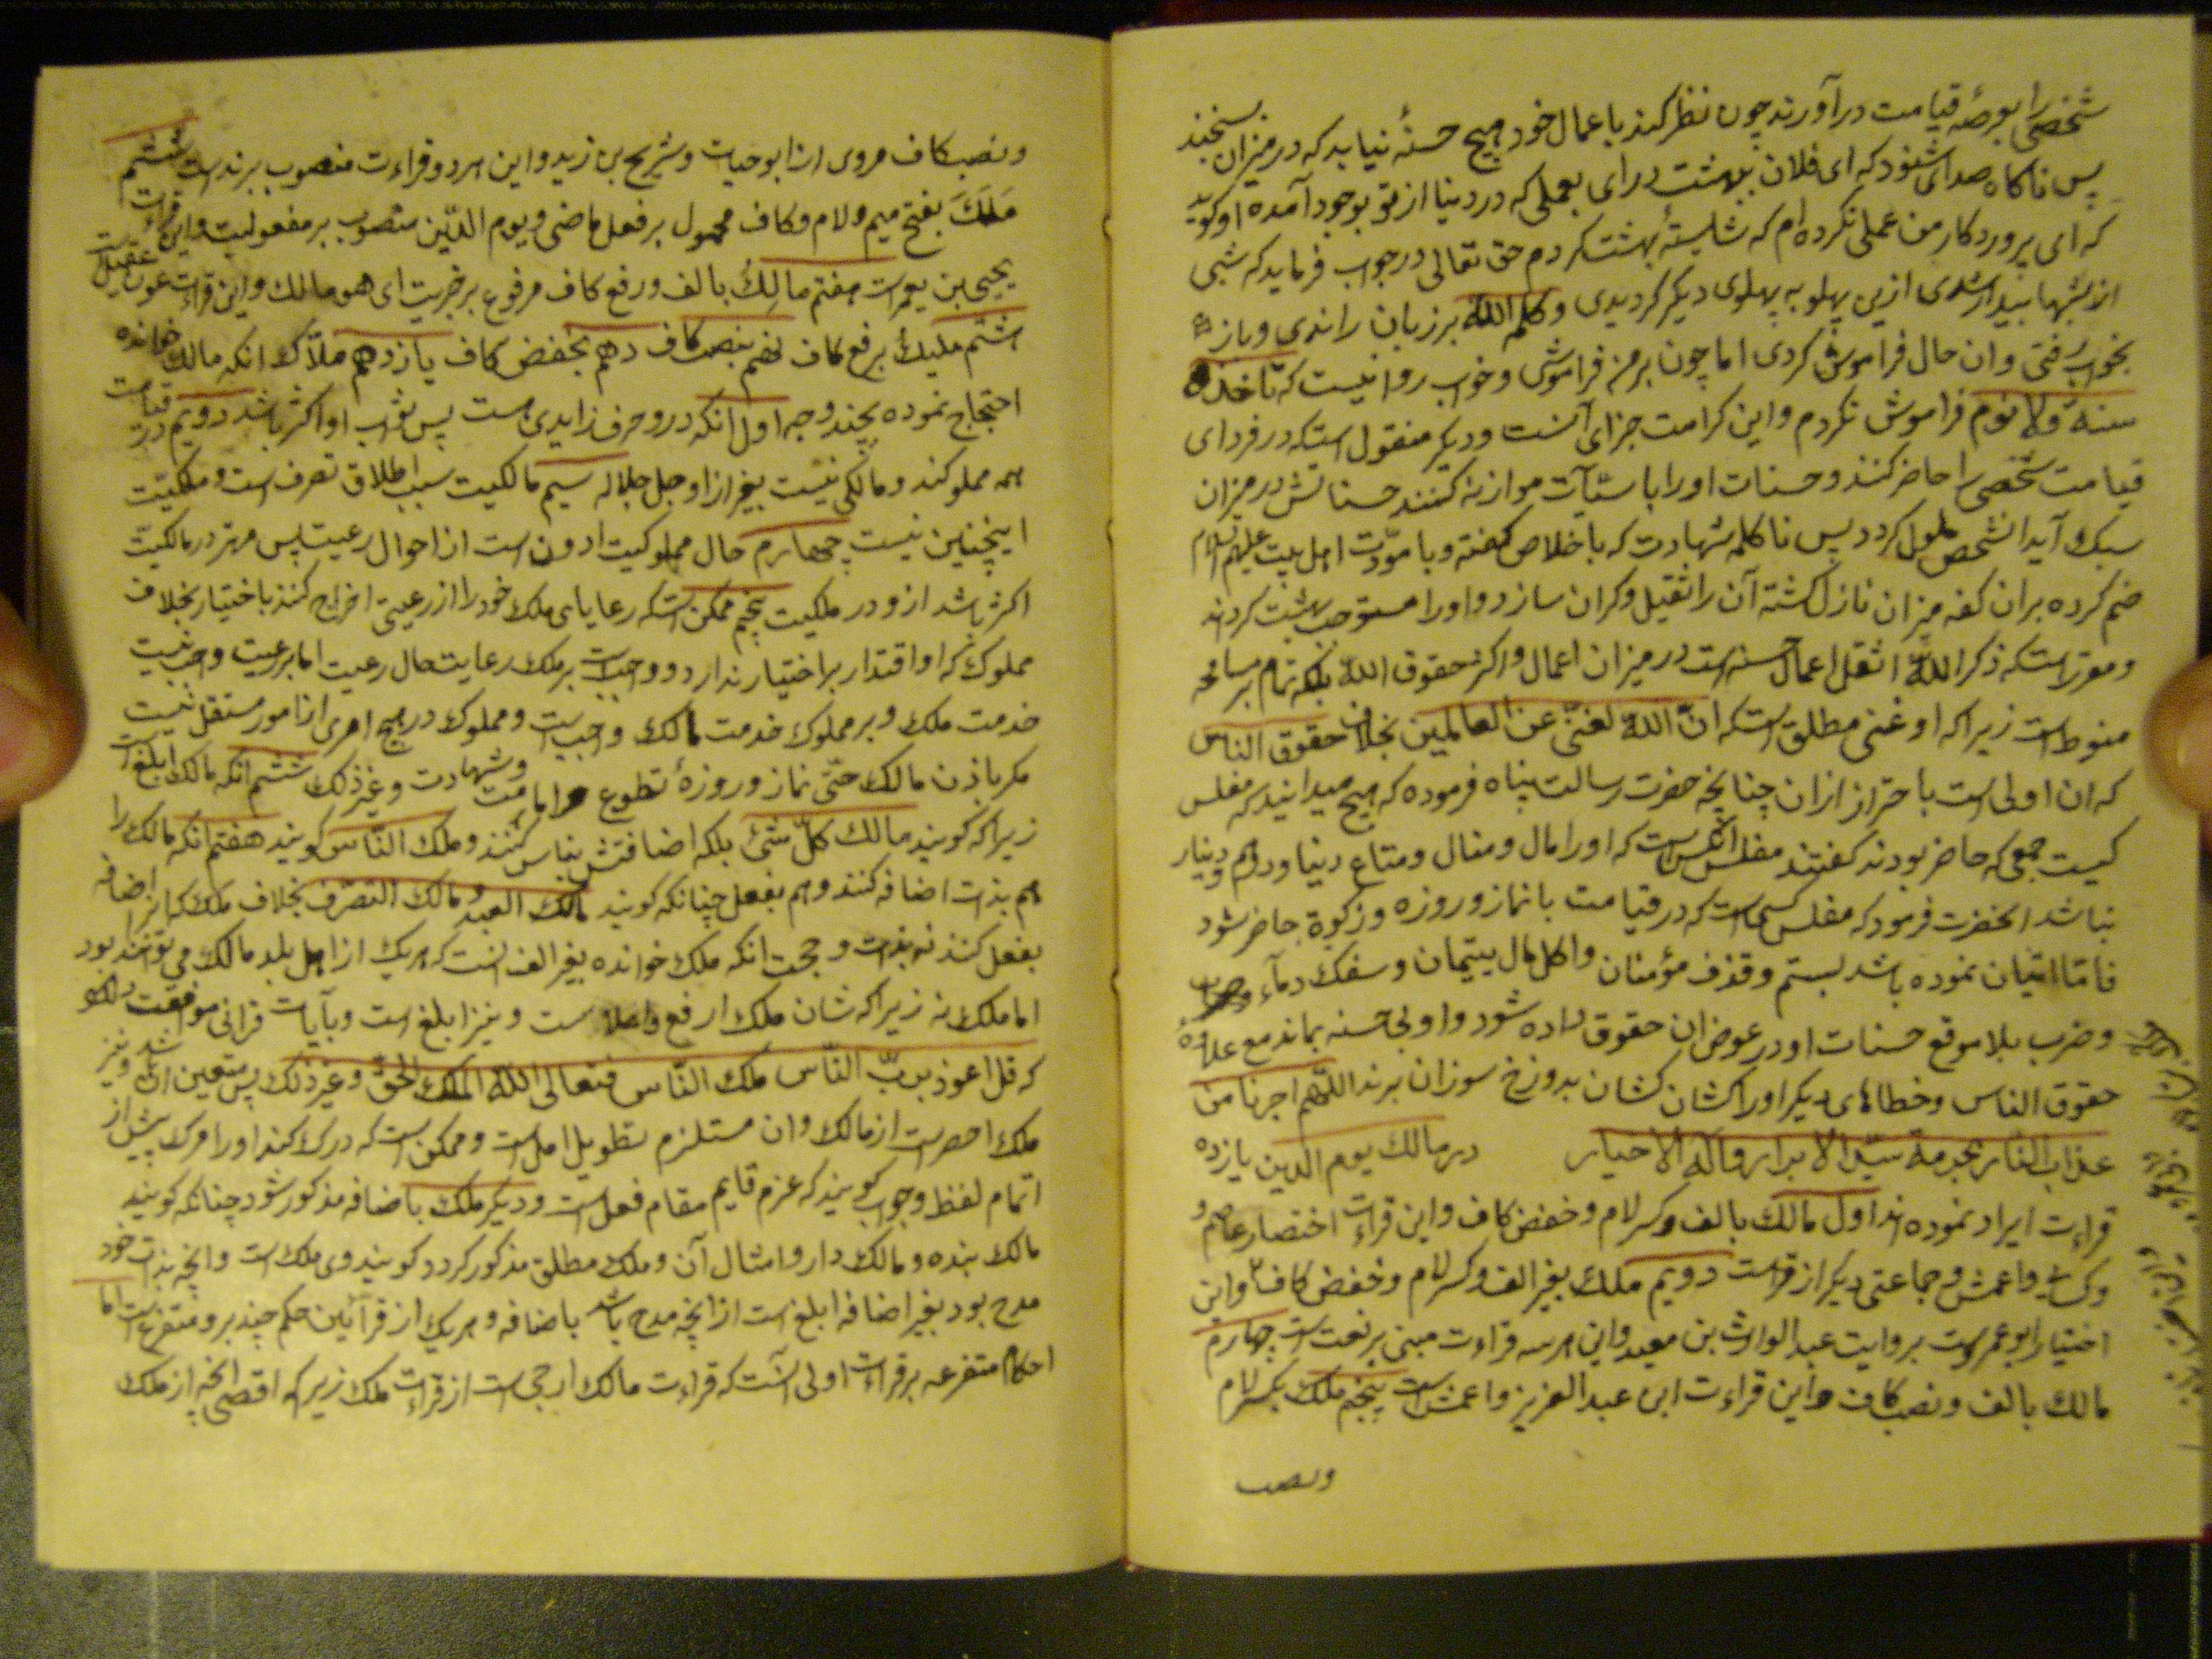 شخصی را بعرصهٔ قیامت درآورند چون نظر کند باعمال خود هیچ حسنهٔ نیابد که در میزان بسنجند
پس ناکاه صدای شنود که ای فلان ببهشت درای بعملی که در دنیا از تو بوجود آمده او کوید
که ای پروردکار من عملی نکرده ام که شایستهٔ بهشت کردم حق تعالی در جواب فرماید که شبی
از شبها بیدار شدی ازین پهلو به پهلوی دیکر کردیدی و کلمه الله بر زبان راندی و باز
بخواب رفتی و ان حال فراموش کردی اما چون بر من فراموشی و خواب روا نیست که لا تاخذه
سنة ولا نوم فراموش نکردم و این کرامت جزای آنست و دیکر منقول است که در فردای
قیامت شخصی را حاضر کنند و حسنات او را با سیّئآت موازنه کنند حسناتش در میزان
سبک آید انشخص ملول کردد پس ناکاه کلمه شهادت که باخلاص کفته و با مودّت اهل بیت علیهم السلام
ضم کرده بران کفه میزان نازل کشته آن را ثقیل و کران سازد و او را مستوجب بهشت کرداند
و مقرر است که ذکر الله اثقل اعمال حسنه است در میزان اعمال و اکثر حقوق الله بلکه تمام بر مسامحه
منوط است زیرا که او غنی مطلق است که انّ الله لغنیّ عن العالمین بخلاف حقوق الناس
که ان اولی است باحتراز ازان چنانچه حضرت رسالت پناه فرموده که هیچ میدانید که مفلس
کیست جمعی که حاضر بودند کفتند مفلس انکس است که او را مال و منال و متاع دنیا و درهم و دینار
نباشد انحضرت فرمود که مفلس کسی است که در قیامت با نماز و روزه و زکوة حاضر شود
فامّا اتیان نموده باشد بستم و قذف مؤمنان و اکل مال یتیمان و سفک دمآء
و ضرب بلا موقع حسنات او در عوض ان حقوق داده شود و او بی حسنه بماند مع علاوهٔ
حقوق الناس و خطاهای دیکر او را کشان کشان بدوزخ سوزان برند اللّهم اجرنا من
عذاب النار بحرمة سیّد الابرار و آله الاخیار در مالک یوم الدین یازده
قراءت ایراد نموده اند اول مالک بالف و کسر لام و خفض کاف و این قراءت اختصار عاصم و
و کسایی و اعمش و جماعتی دیکر از قراست دویم ملک بغیر الف و کسر لام و خفض کاف و این
اختیار ابو عمر است بروایت عبد الوارث بن سعید و این هر سه قراءت مبنی بر نعت است چهارم
مالک بالف و نصب کاف و این قراءت ابن عبد العزیز و اعمش است پنجم ملک بکسر لام
و نصب
و نصب کاف مروی از ابو حیات و شریح بن زید و این هر دو قراءت منصوب بر نداست ششم
مَلَکَ بفتح میم و لام و کاف محمول بر فعل ماضی و یوم الدّین منصوب بر مفعولیت و این قراءت
یحیی بن یعمر است هفتم مالِکُ بالف و رفع کاف مرفوع بر خبریت ای هو مالک و این قراءت عون عقیل است
هشتم ملیک برفع کاف نهم بنصب کاف دهم بخفض کاف یازدهم ملاّک انکه مالک خوانده
احتجاج نموده بچند وجه اول انکه درو حرف زایدی هست پس ثواب او اکثر باشد دویم در قیامت
همه مملوکند و مالکی نیست بغیر از او جل جلاله سیم مالکیت سبب اطلاق تصرف است و ملکیّت
اینچنین نیست چهارم حال مملوکیت ادون است از احوال رعیت پس مهتر در مالکیّت
اکثر باشد ازو در ملکیت پنجم ممکن است که رعایای ملک خود را از رعیتی اخراج کنند باختیار بخلاف
مملوک که او اقتدار بر اختیار ندارد و واجب است بر ملک رعایت حال رعیت اما بر رعیت واجب نیست
خدمت ملک و بر مملوک خدمت مالک واجب است و مملوک در هیچ امری از امور مستقل نیست
مکر باذن مالک حتّی نماز و روزهٔ تطوع و امامت و شهادت و غیر ذلک ششم انکه مالک ابلغ است
زیرا که کویند مالک کلّ شئ بلکه اضافتش بناس کنند و ملک النّاس کویند هفتم انکه مالک را
هم بذات اضافه کنند و هم بفعل چنانکه کویند مالک العبد و مالک التصرّف بخلاف ملک که انرا اضافه
بفعل کنند نه بذات و حجت انکه ملک خوانده بغیر الف انست که هر یک از اهل بلد مالک می توانند بود
اما ملک نه زیرا که شان ملک ارفع و اعلا است و نیز ابلغ است و بآیات قرانی موافقت
که قل اعوذ بربّ النّاس ملک النّاس فتعالی الله الملک الحقّ و غیر ذلک پس متعین ان باشد و نیز
ملک احصر است از مالک و ان مستلزم تطویل امل است و ممکن است که درک کند او را مرک پیش از
اتمام لفظ و جواب کویند که عزم قایم مقام فعل است و دیکر ملک باضافه مذکور شود چنانکه کویند
مالک بنده و مالک دار و امثال آن و ملک مطلق مذکور کردد کویند وی ملک است و انچه بذات خود
مدح بود بغیر اضافه ابلغ است از انچه مدح باشد باضافه و هر یک از قرآئین حکم چند برو متفرع است اما
احکام متفرعه بر قراءت اولی انست که قراءت مالک ارجی است از قراءت ملک زیرا که اقصی انچه از ملک